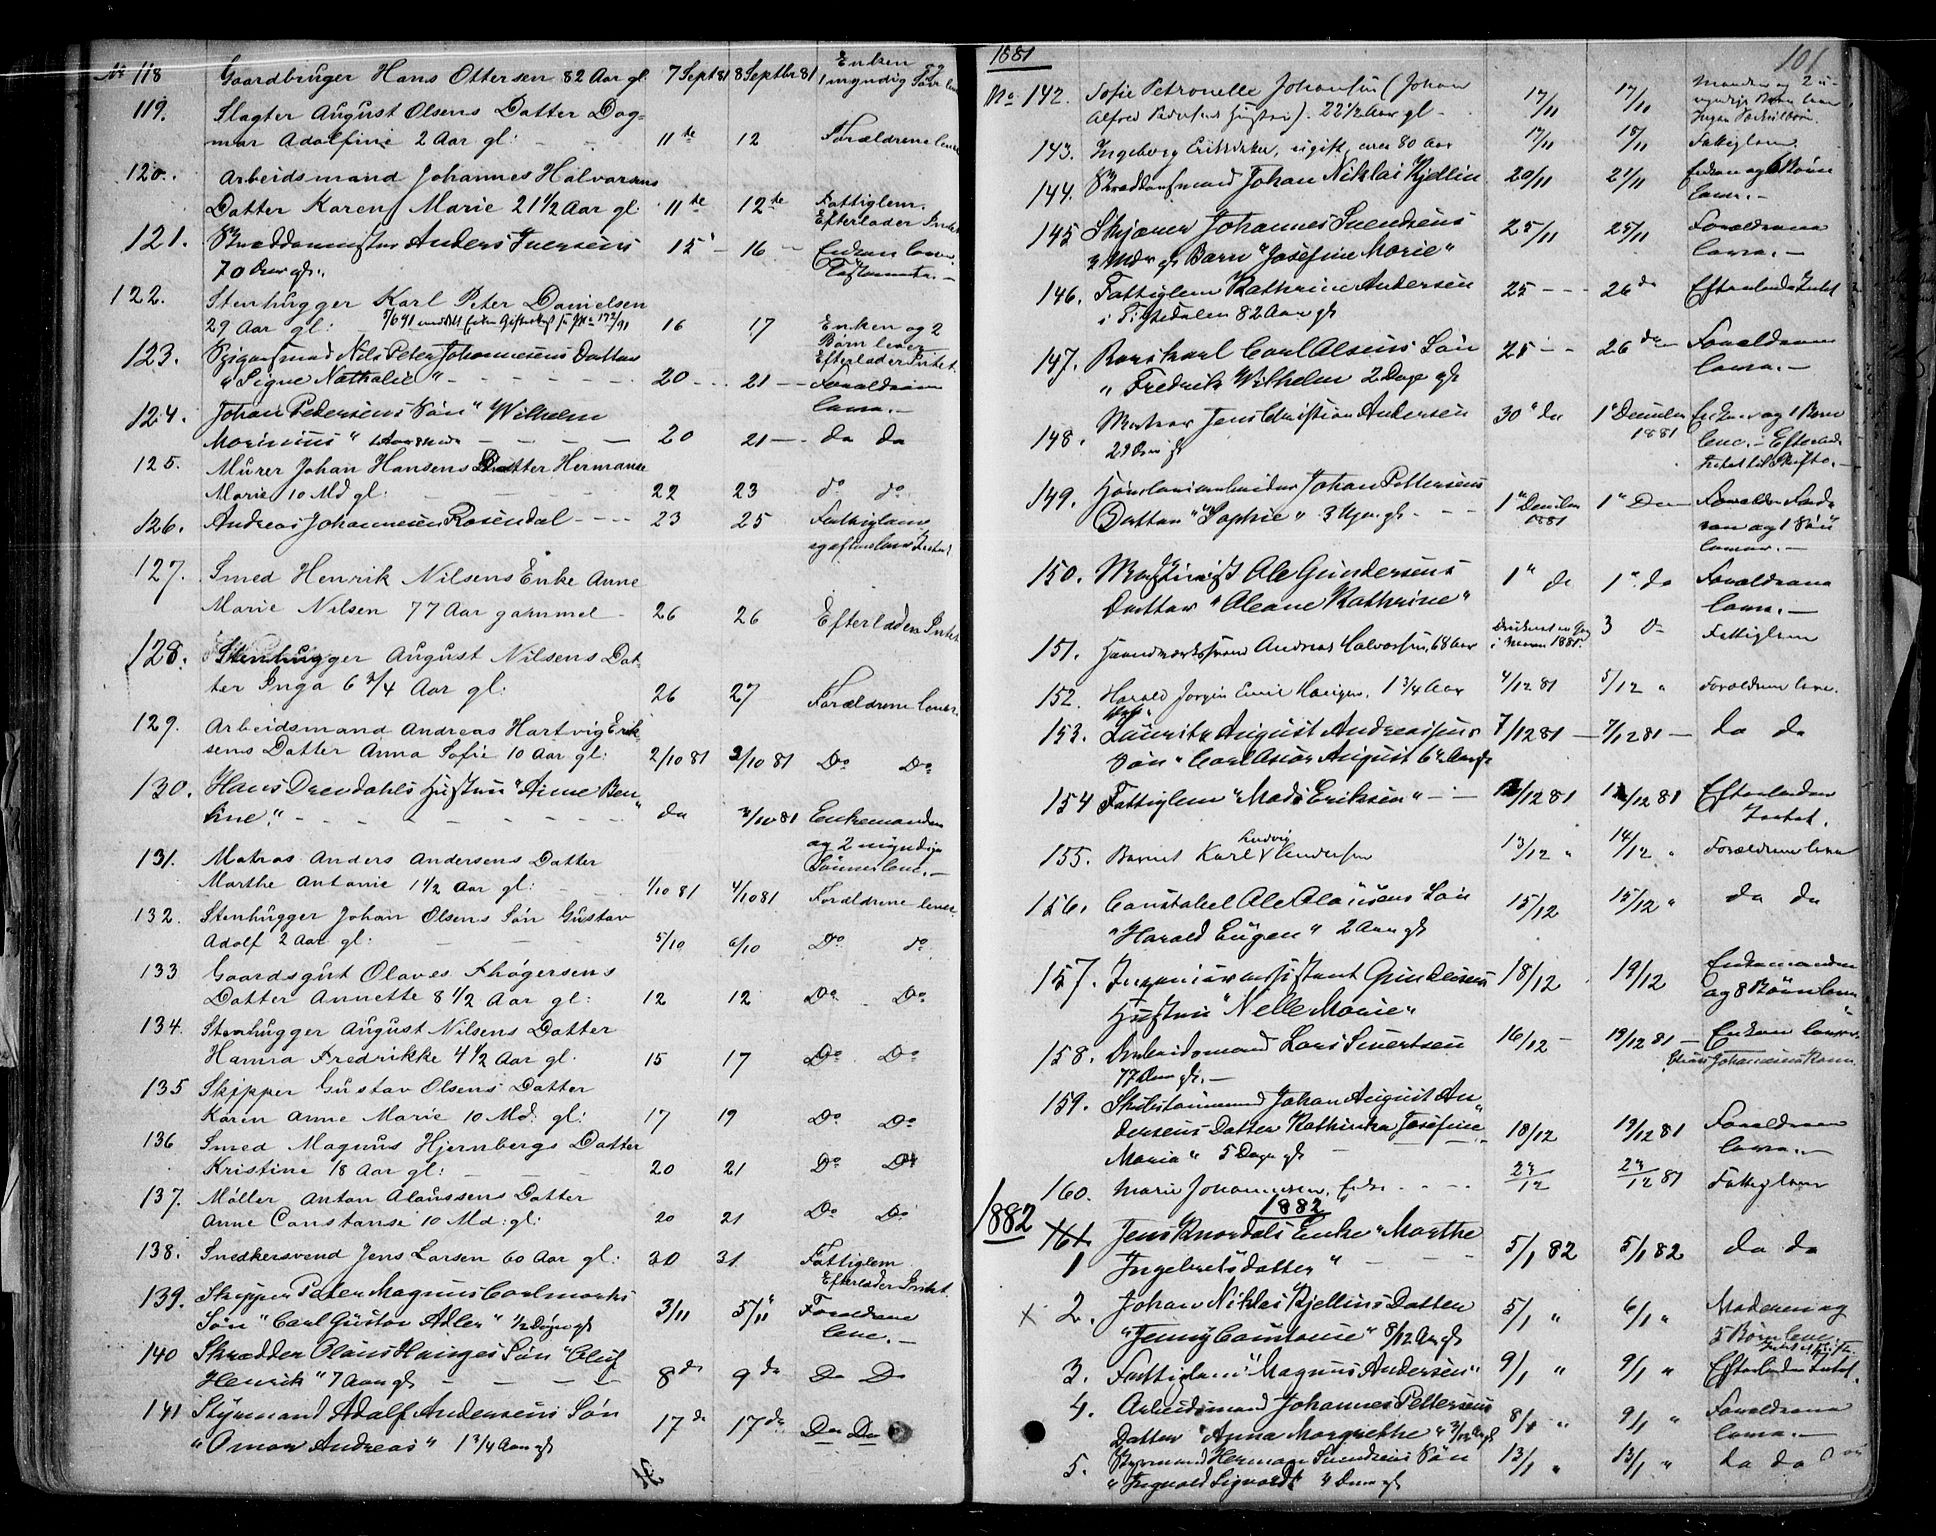 No 118 Gaardbruger Hans Ottersen 82 Aar gl. 7 Sept 81 8 Septbr 81 Enken
1 myndig Søn lever
119. Slagter August Olsens Datter Dag-
mar Adolfine 2 Aar gl: 11te 12 Forældrene lever
120. Arbeidsmand Johannes Halvorsens
Datter Karen Marie 21 1/2 Aar gl: 11te 12te Fattiglem.
Efterlader Intet
121. Anders Iversens 15 16 Enken lever
70 Aar gl. Testamente.
122. Stenhugger Karl Peter Danielsen
29 Aar gl: 16 17 Enken og 2
Børn lever
Efterlader Intet.
123. Nils Peter Johannesens Datter
"Signe Nathalie" 20 21 Forældrene
leve.
124. Johan Pedersens Søn "Wilhelm
Marinius" 20 21 do do
125. Murer Johan Hansens Datter Hermanse
Marie 10 Md gl: 22 23 do do
126. Andreas Johannesen Rosendal 23 25 Fattiglem
127. Smed Henrik Nilsens Enke Anne
Marie Nilsen 77 Aar gammel 26 26 Efterlader Intet
128. Stenhugger August Nilsens Dat-
ter Inga 6 3/4 Aar gl: 26 27 Forældrene lever.
129. Arbeidsmand Andreas Hartvig Erik-
sens Datter Anna Sofie 10 Aar gl: 2/10 81 2/10 81 Do Do
130. Hans Drendahls Hustru "Anne Ben-
tine." do 3/10 81 Enkemanden
og 2 myndige
Sønner leve.
131. Matros Anders Andersens Datter
Marthe Antonie 1 1/2 Aar gl: 1/10 81 4/10 81 Forældrene lever.
132. Stenhugger Johan Olsens Søn Gustav
Adolf 2 Aar gl: 5/10 6/10 Do do
133 Gaardsgut Olaves Thøgersens
Datter Annette 8 1/2 Aar gl: 12 12 Do Do
134. Stenhugger August Nilsens Datter
Hanna Fredrikke 4 1/2 Aar gl. 15 17 Do Do
135 Skipper Gustav Olsens Datter
Karen Anne Marie 10 Md: gl: 17 19 Do Do
136 Smed Magnus Hjernbergs Datter
Kristine 18 Aar gl: 20 21 Do Do
137. Møller Anton Olaussens Datter
Anne Constanse 10 Md: gl: 20 21 Do Do
138. Snedkersvend Jens Larsen 60 Aar gl: 30 31 Fattiglem
Efterlader Intet.
139. Skipper Peter Magnus Carlmarks
Søn "Carl Gustav Adler" 1/2 Døgn gl 3/11 5/11 Forældrene
leve.
140 Skrædder Olaus Hanges Søn "Oluf
Henrik" 7 Aar gl 8 do 9 do Do Do
141 Styrmand Adolf Andersens Søn
"Omar Andreas" 1 3/4 Aar gl 17 do 17 do Do Do
1881 101
No. 142. Sofie Petronelle Johansen (Johan
Alfred Pedersens Hustru). 22 1/2 Aar gl 17/11 17/11 Manden og 2 u-
myndige Børn lever
143. Ingeborg Eriksdatter, ugift, over 80 Aar 17/11 18/11 Fattiglem.
144. Johan Niklas Kjellin 20/11 21/11 Enken og 6 Børn
lever.
145 Skjøner Johannes Svendsens 25/11 25/11 Forældrene
Mdr gl Barn "Josefine Marie" leve.
146. Fattiglem Kathrine Andersen 25 26 do Efterlader Intet
i Tistedalen 82 Aar gl
147. Carl Olsens Søn 25 26 do Forældrene
"Fredrik Wilhelm 2 Dage gl leve.
148. Matros Jens Christian Andersen 30 do 1 December Enken og 1 Barn
29 Aar gl 1881 leve. - Efterlader
Intet til Skifte.
149. Johan Pettersens 1 December 1 De
Datter "Sophie" 3 gl. 1881 og 1 Søn
150. Maskinist Ole Gundersens 1 do 1 do Forældrene
Datter "Oleane Kathrine" leve.
151. Haandværkssvend Andreas Halvorsen, 68 Aar 1881 3 Do Fattiglem
152. Harald Jørgen Emil Hansen, 1 3/4 Aar 4/12 81 5/12 " Forældrene leve.
153. Lauritz August Andreassens 7/12 81 7/12 81 do do
Søn "Carl Oscar August
154 Fattiglem "Mads Eriksen" 12/12 81 12/12 81 Efterlader
Intet.
155. Barnet Karl Ludvig Andersen 13/12 " 14/12 " Forældrene leve
156. Constabel Ole Olausens Søn 15/12 15/12 " do do
"Harald Eugen" 2 Aar gl
157. Ingeniørassistent Gundersens 18/12 19/12 Enkemanden
Hustru "Nelle Marie" og 8 Børn leve
158. Arbeidsmand Lars Sivertsen 16/12 19/12 81 Enken lever.
77 Aar gl.
159. Johan August An-
dersens Datter Kathinka Josefine 18/12 19/12 81 Forældrene
Maria" 5 Dage gl leve.
160. Marie Johannesen, Enke 23/12 23/12 81 Fattiglem
1882
1882 161 Jens Knardals Enke "Marthe
1 Ingebretsdatter" 5/1 82 5/1 82 do do
x 2. Johan Niklas Kjellins Datter 5/1 " 6/1 " Moderen og
"Jenny Constanse" 8/12 Aar gl 5 Børn leve.
3. Fattiglem "Magnus Andersen" 9/1 " 9/1 " Efterlader Intet.
4. Arbeidsmand Johannes Pettersens 8/1 " 9/1 " Forældrene
Datter "Anna Margrethe" 3/12 Aar gl leve.
5. Styrmand Herman Svendsens Søn 13/1 " 13/1 " do do
"Ingvald Sigvardt